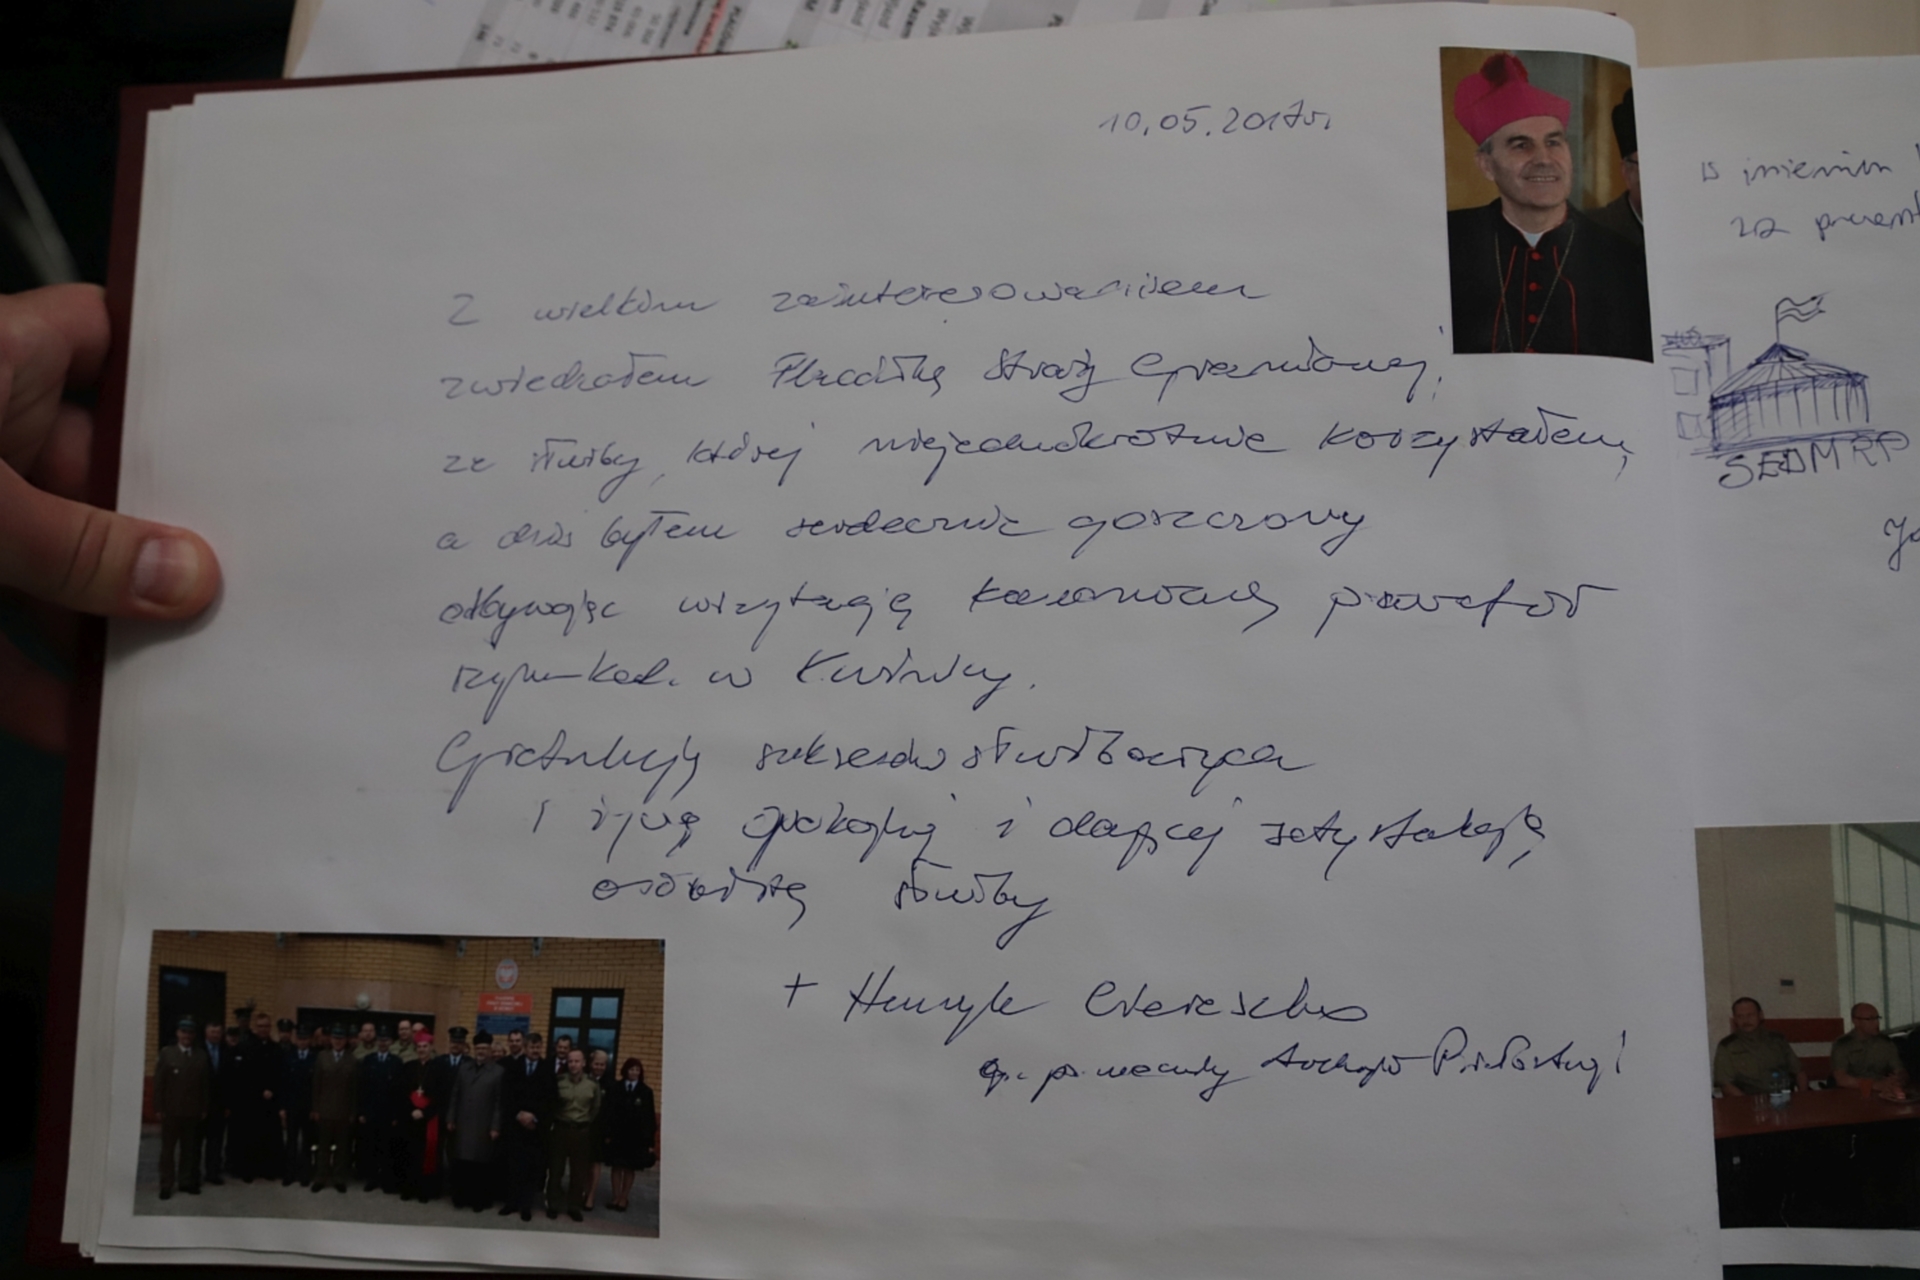 10.05.2017r.
Z wielkim zainteresowaniem
zwiedzałem Placówkę Straży Granicznej,
ze służby, której niejednokrotnie korzystałem,
a dziś byłem serdecznie goszczony
odbywając wizytację kanoniczną parafii
rzym-kat. w Kuźnicy.
Gratuluję sukcesów służbowych
i życzę spokojnej i dającej satysfakcję
osobistą służby
+ Henryk Ciereszko
bp. pomocniczy Archidiec. Białostockiej
W imieniu
za prezent
SEDMRP